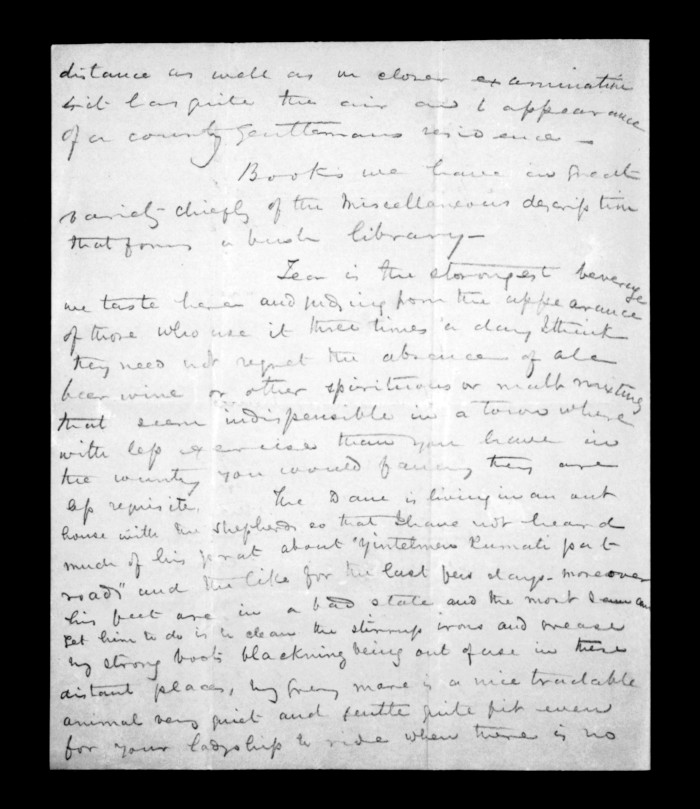 distance as well as on closer examination
& it has quite the air and appearance
of a country gentlemans residence -
Books we have in great
variety chiefly of the Miscellaneous description
that forms a bush library -
Tea is the strongest beverage
we taste here and judging from the appearance
of those who use it three times a day I think
they need not regret the absence of ale
beer wine or other spirituous or malt mixting
that seem indispensible in a town where
with less exercise than you have in
the country you would fancy they are
less requisite. The Dane is living in an out
house with the shepherds so that I have not heard
much of his prat about "Yintelmens Rumati pat
roads" and the like for the last few days - moreover
his feet are in a bad state and the most I can
get him to do is to clean the stirrup irons and grease
my strong boots blackning being out of use in these
distant places, My Grey mare is a nice tractable
animal very quiet and gentle quite fit even
for your ladyship to ride when there is no